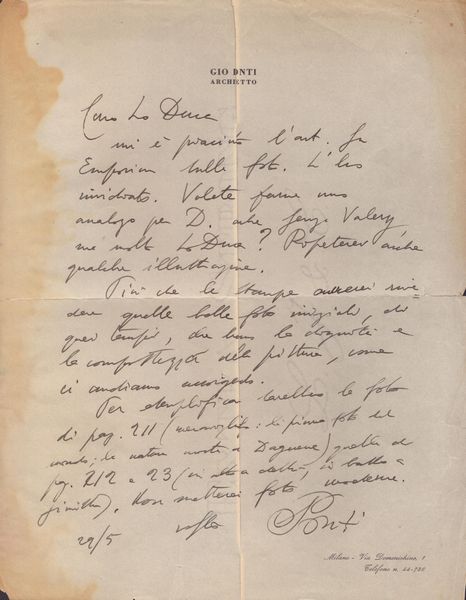 GIO PONTI
ARCHITETTO
Caro Lo Duca
mi è piaciuto l'art. su
Emporium sulle foto. L'ho
invidiato. Volete farne uno
analogo per D. anche senza Valery,
ma molto Lo Duca? Ripeterei anche
qualche illustrazione.
Più che le stampe vorrei rive
dere quelle belle foto iniziali, di
quei tempi, che hanno la dignità e
la compostezza della pittura, come
ci andiamo
Per esemplificare sarebbero le foto
di pag. 211 (meraviglia: la prima foto del
mondo; la natura morta di Daguerre) quelle di
pag. 212 e 23 (in alto a destra, in basso a
sinistra). Non metterei foto moderne.
29/5
Ponti
Milano - Via Domenichino, 1
Telefono n.